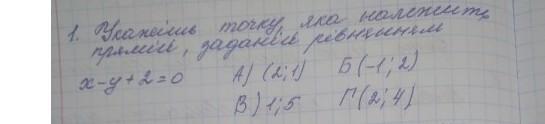 1. Укажіть точку, яка належить
прямій, заданій рівнянням
x-y+2=0 А) (2;1) Б (-1;2)
В) 1;5 Г (2;4)